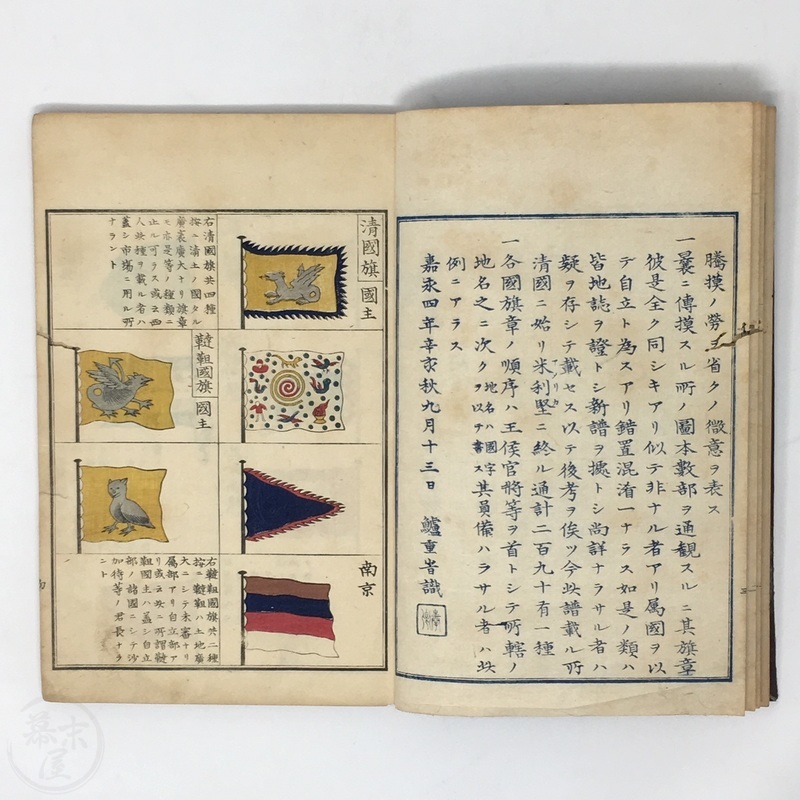 騰摸ノ勞ヲ省クノ微意ヲ表ス
一曩ニ傳摸スル所ノ圖本數部ヲ通観スルニ其旗章
彼是全ク同シキアリ似テ非ナル者アリ属國ヲ以
テ自立ト為スアリ錯置混淆一ナラス如是ノ類ハ
皆地誌ヲ證トシ新譜ヲ據トシ尚詳ナラサル者ハ
疑ヲ存シテ載セス以テ後考ヲ俟ツ今此譜載ル所
清國ニ始リ米利堅ニ終ル通計二百九十有一種
一各國旗章ノ順序ハ王侯官將等ヲ首トシテ所轄ノ
地名之ニ次ク地名ハ國字ヲ以テ書ス其員備ハラサル者ハ此
例ニアラス
嘉永四年辛亥秋九月十三日 鱸重峕識
清國旗 國主
南京
右清國旗共四種
按ニ清土ノ國タル
廣袤廣大ナリ旗章
モ亦是等ノ種類ニ
止ル可ラス或云西
人此種ヲ載ル者ハ
蓋シ市塲ニ用ル所
ナラント
韃靼國旗 國主
右韃靼國旗共二種
按ニ韃靼ハ土地廣
大ニシテ未審ナリ
属部アリ自立部ア
リ或云此ニ所謂韃
靼國主ハ蓋シ自立
部ノ諸國ニシテ沙
加待等ノ君長ナラ
ント
幕末屋